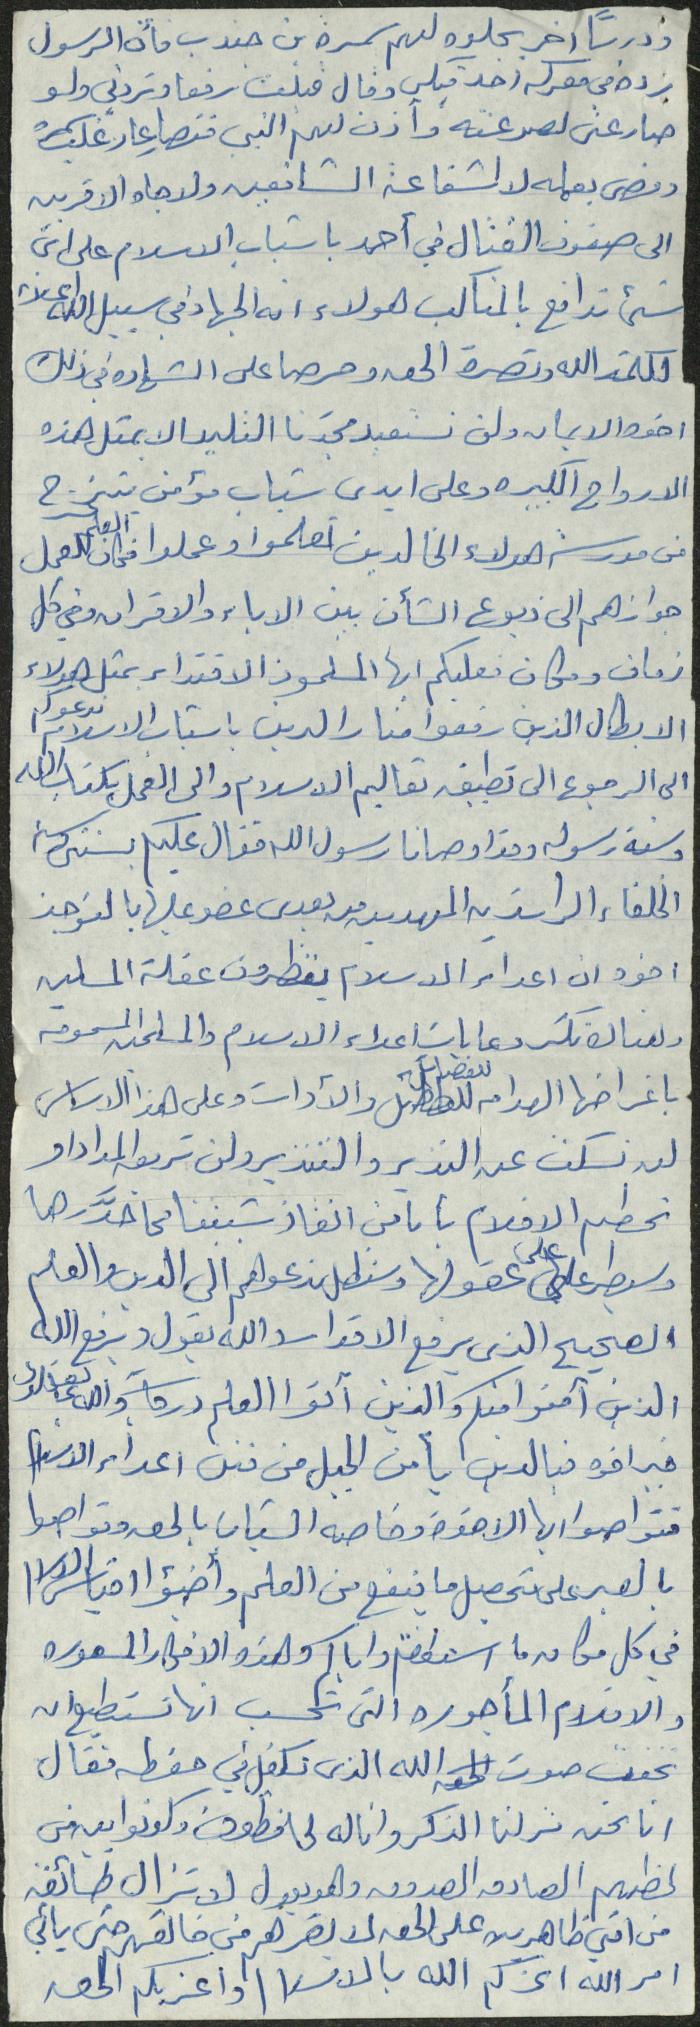 ودرسًا آخر يجلوه لهم سمرة بن جندب فان الرسول
رده في معركة احد قبلي وقال قبلت رفعا وتردني ولو
صارعني لصرعته وأذن لهم النبي فتصارعا
ومضى بعمله لا لشفاعة الشافعين ولا جاه الاقربين
الى صفوف القتال في أحد يا شباب الاسلام على اى
شئ تدافع بالمناكب هولاء انه الجهاد في سبيل الله اعلاء
لكلمة الله ونصرة الحق وحرصا على الشهاده في ذلك
اخوة الايمان ولن نستعيد مجدنا التليد الا بمثل هذه
الارواح الكبيره وعلى ايدى شباب مؤمن يتخرج
من مدرسة هولاء الخالدين تعلموا وعملوا فكان العلم والعمل
جوازهم الى ذيوع الشأن بين الاباء والاقران وفي كل
زمان ومكان فعليكم ايها المسلمون الاقتداء بمثل هولاء
الابطال الذين رفعوا منار الدين يا شباب الاسلام ندعوكم
الى الرجوع الى تطبيق تعاليم الاسلام والى العمل بكتاب الله
وسنة رسوله وقد اوصانا رسول الله فقال عليكم بسنتي وسنة
الخلفاء الراشدين المهديين من بعدى عضو عليها بالنواجذ
اخوه ان اعداء الاسلام ينتظرون غفلة المسلمين
وهناك تكثر دعايات اعداء الاسلام والمسلمين المسمومه
باغراضها الهدامه للفضائل والأدات وعلى هذا الاساس
لن نسكت عن النذير والتنذير ولن تريق المداد او
تحطم الاقلام يا يامن انقاذ شبيبتنا مما خدرها
وسيطر على عقولها وسنظل ندعوهم الى الدين والعلم
الصحيح الذى يرفع الاقدار والله يقول يرفع الله
الذين آمنوا منكم والذين أتوا العلم درجات والله
فيا اخوه فبالدين يأمن الجيل من فتن اعداء الاسلام
فتواصوا ايها الاخوة وخاصه الشباب بالحق وتواصوا
بالصبر على تحصيل ما ينفع من العلم وأضيؤا اقباس الاسلام
في كل مكان ما استطعتم واياكم وهذه الافكار المسموره
والاقلام المأجوره التى تحسب انها تستطيع ان
تخفت صوت الله الذى تكفل في حفظه فقال
انا نحن نزلنا الذكر وانا له لحافظون وكونوا من
الصادق الصدوق وهو يقول لا تزال طائفة
من امتي ظاهرين على الحق لا يضرهم من خالفهم حتى يأتي
امر الله اعزكم الله بالاسلام واعز بكم الحق